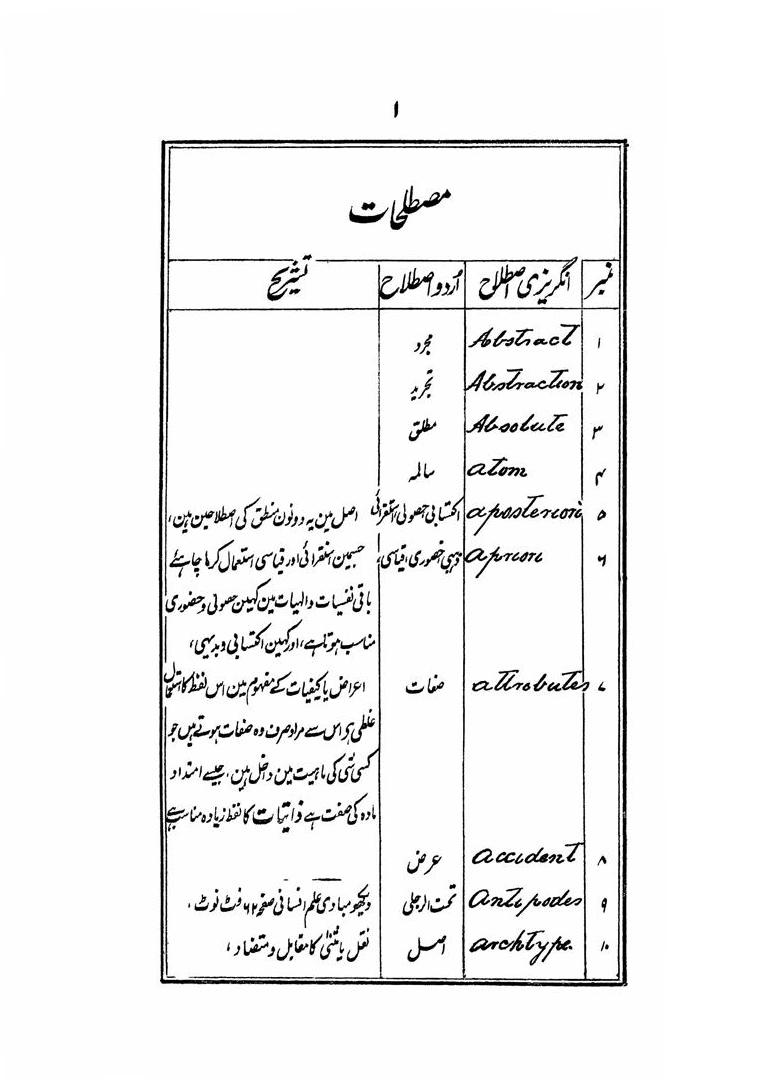 ۱
مصطلحات
نمبر انگریزی اصطلاح اُردو اصطلاح تشریح
۱ Abstract مجرد
۲ Abstraction تجرید
۳ Absolute مطلق
۴ atom سالمہ
۵ aposteriori اکتسابی حصولی استقرائی اصل مین یہ دونون منطق کی اصطلاحین ہین،
۶ apriori وہبی حضوری، قیاسی، جسمین استقرائی اور قیاسی استعمال کرنا چاہئے
باقی نفسیات والہیات مین کہین حصولی وحضوری
مناسب ہوتا ہے، اور کہین اکتسابی وبدیہی،
۷ attrobutes صفات اعراض یا کیفیات کے مفہوم مین اس لفظ کا استعمال
غلطی ہی اس سے مراد صرف وہ صفات ہوتے ہیں جو
کسی شئی کی ماہیت مین داخل ہین، جیسے امتداد
مادہ کی صفت ہے ذاتیات کا لفظ زیادہ مناسب ہے
۸ accident عرض
۹ Antipodes تحت الرجلی دیکھو مبادی علم انسانی صفحہ ۶۲ فٹ نوٹ،
۱۰ archtype. اصل نقل یا مثنیٰ کا مقابل ومتضاد،